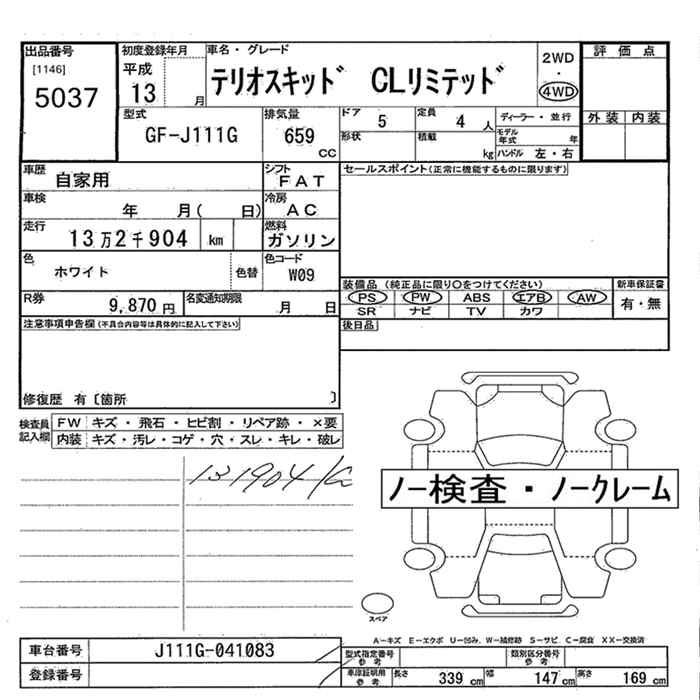 出品番号
[1146]
5037
初度登録年月
平成
13 月
車名・グレード
テリオスキッド CLリミテッド
2WD
・
4WD
評価点
外装 内装
型式
GF-J111G
排気量
659
CC
ドア
5
定員
4 人
形状
積載
kg
ディーラー・並行
モデル
年式 年
ハンドル 左・右
車歴
自家用
シフト
FAT
セールスポイント(正常に機能するものに限ります)
車検
年 月( 日)
冷房
AC
走行
13万2千904 km
燃料
ガソリン
色
ホワイト
色替
色コード
W09
装備品(純正品に限り○をつけてください)
PS PW ABS エアB AW
SR ナビ TV カワ
新車保証書
有・無
R券
9,870 円
名変通知期限
月 日
後日品
注意事項申告欄(不具合内容等は具体的に記入して下さい)
修復歴 有〔箇所 〕
検査員
記入欄
FW キズ・飛石・ヒビ割・リペア跡・×要
内装 キズ・汚レ・コゲ・穴・スレ・キレ・破レ
ノー検査・ノークレーム
スペア
A-キズ E-エクボ U-凹み W-補修跡 S-サビ C-腐食 XX-交換済
車台番号
J111G-041083
登録番号
型式指定番号
参考
類別区分番号
参考
車庫証明用
参考
長さ 339 cm 幅 147 cm 高さ 169 cm